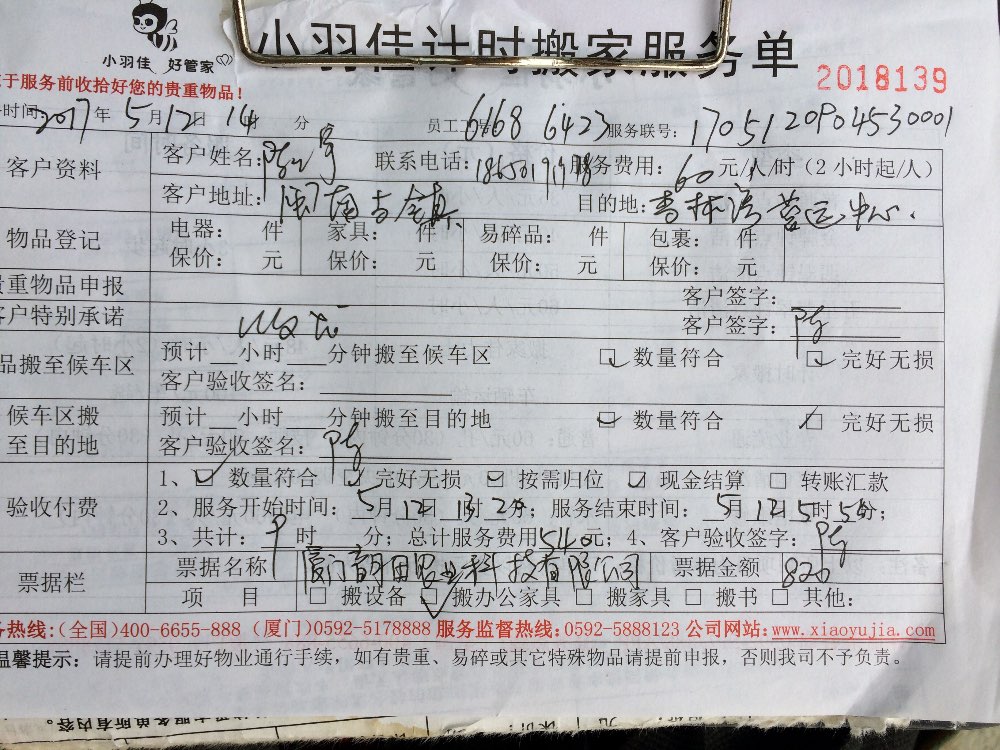 小羽佳 好管家
小羽佳计时搬家服务单
2018139
于服务前收拾好您的贵重物品！
时间: 2017年5月12日14时 分 员工工号 6168 6423 服务联号: 1705120904530001
客户资料 客户姓名: 联系电话: 服务费用: 60 元/人/时（2小时起/人）
客户地址: 闽南古镇 目的地: 杏林湾营运中心.
物品登记 电器: 件 家具: 件 易碎品: 件 包裹: 件
保价: 元 保价: 元 保价: 元 保价: 元
贵重物品申报 客户签字:
客户特别承诺 客户签字:
品搬至候车区 预计 小时 分钟搬至候车区 数量符合 完好无损
客户验收签名:
候车区搬至目的地 预计 小时 分钟搬至目的地 数量符合 完好无损
客户验收签名:
验收付费 1、 数量符合 完好无损 按需归位 现金结算 转账汇款
2、服务开始时间: 5月12日13时2分; 服务结束时间: 5月12日5时5分;
3、共计: 9时 分; 总计服务费用540元; 4、客户验收签字:
票据栏 票据名称 厦门 田农业科技有限公司 票据金额 820
项 目 搬设备 搬办公家具 搬家具 搬书 其他:
务热线:(全国)400-6655-888 (厦门)0592-5178888 服务监督热线:0592-5888123 公司网站:www.xiaoyujia.com
温馨提示: 请提前办理好物业通行手续，如有贵重、易碎或其它特殊物品请提前申报，否则我司不予负责。